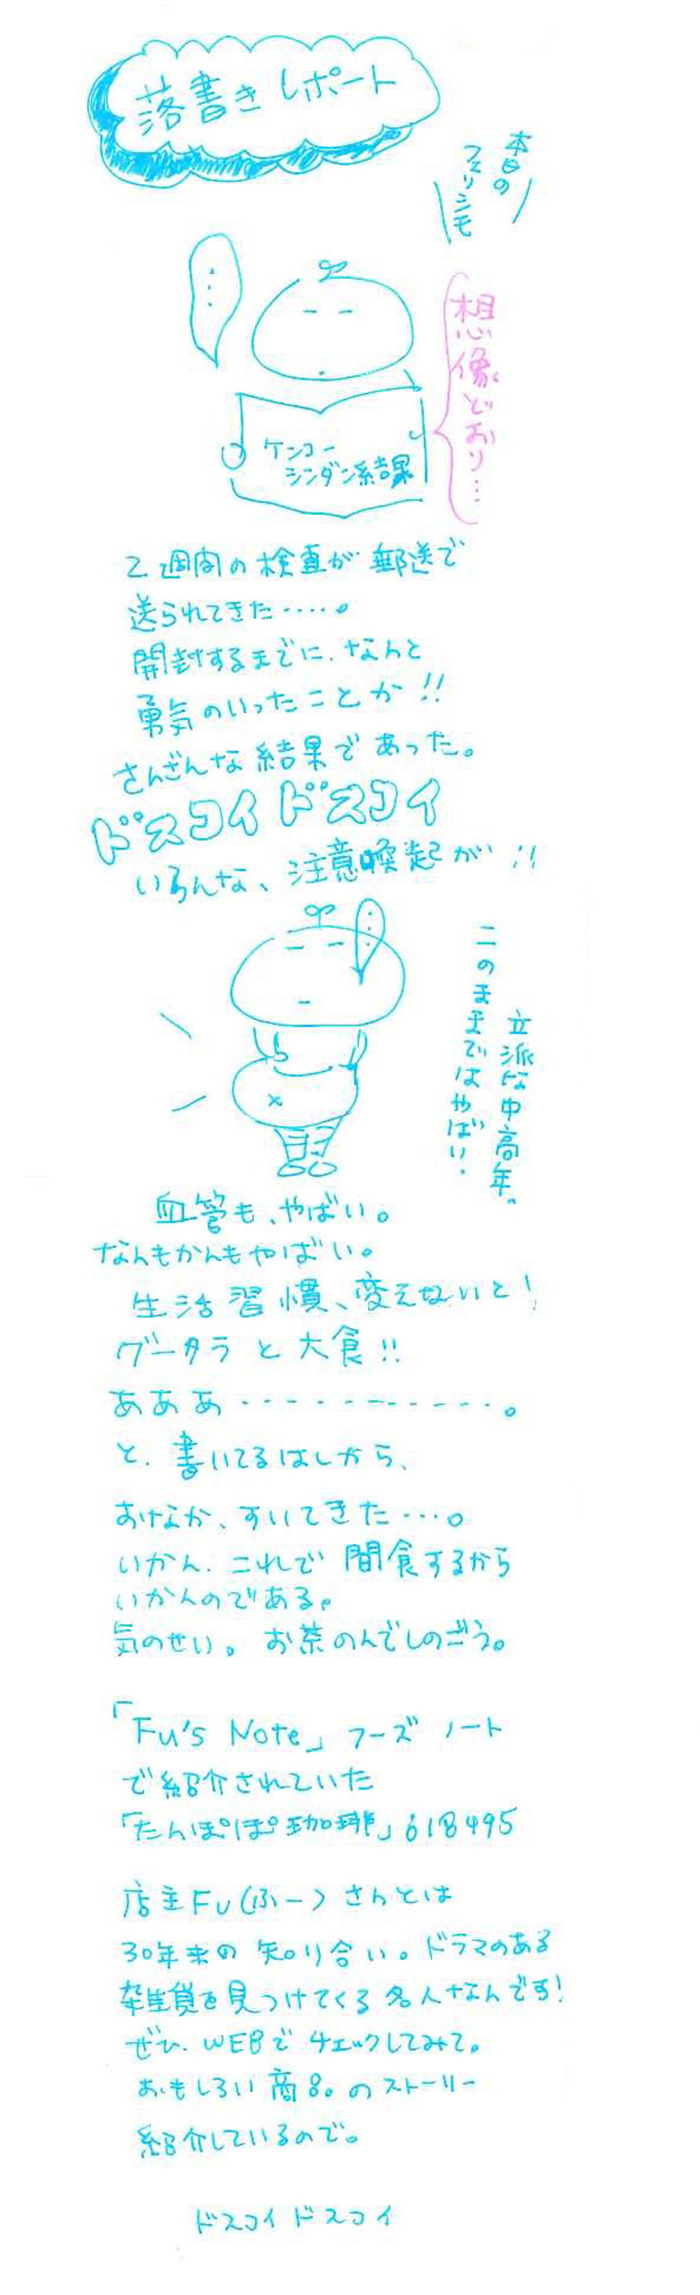 落書きレポート
本日の
フェリシモ
・・・
想像どおり…
ケンコー
シンダン結果
2週間の検査が郵送で
送られてきた……。
開封するまでに、なんと
勇気のいったことか!!
さんざんな結果であった。
ドスコイドスコイ
いろんな、注意喚起が!!
・・・
立派な中高年。
このままではやばい!
血管も、やばい。
なんもかんもやばい。
生活習慣、変えないと!
グータラと大食!!
あああ・・・・・・・・・・・。
と、書いてるはしから、
おなか、すいてきた…。
いかん、これで間食するから
いかんのである。
気のせい。お茶のんでしのごう。
「Fu's Note」フーズノート
で紹介されていた
「たんぽぽ珈琲」618495
店主Fu(ふー)さんとは
30年来の知り合い。ドラマのある
雑貨を見つけてくる名人なんです!
ぜひ、WEBでチェックしてみて。
おもしろい商品のストーリー
紹介しているので。
ドスコイドスコイ